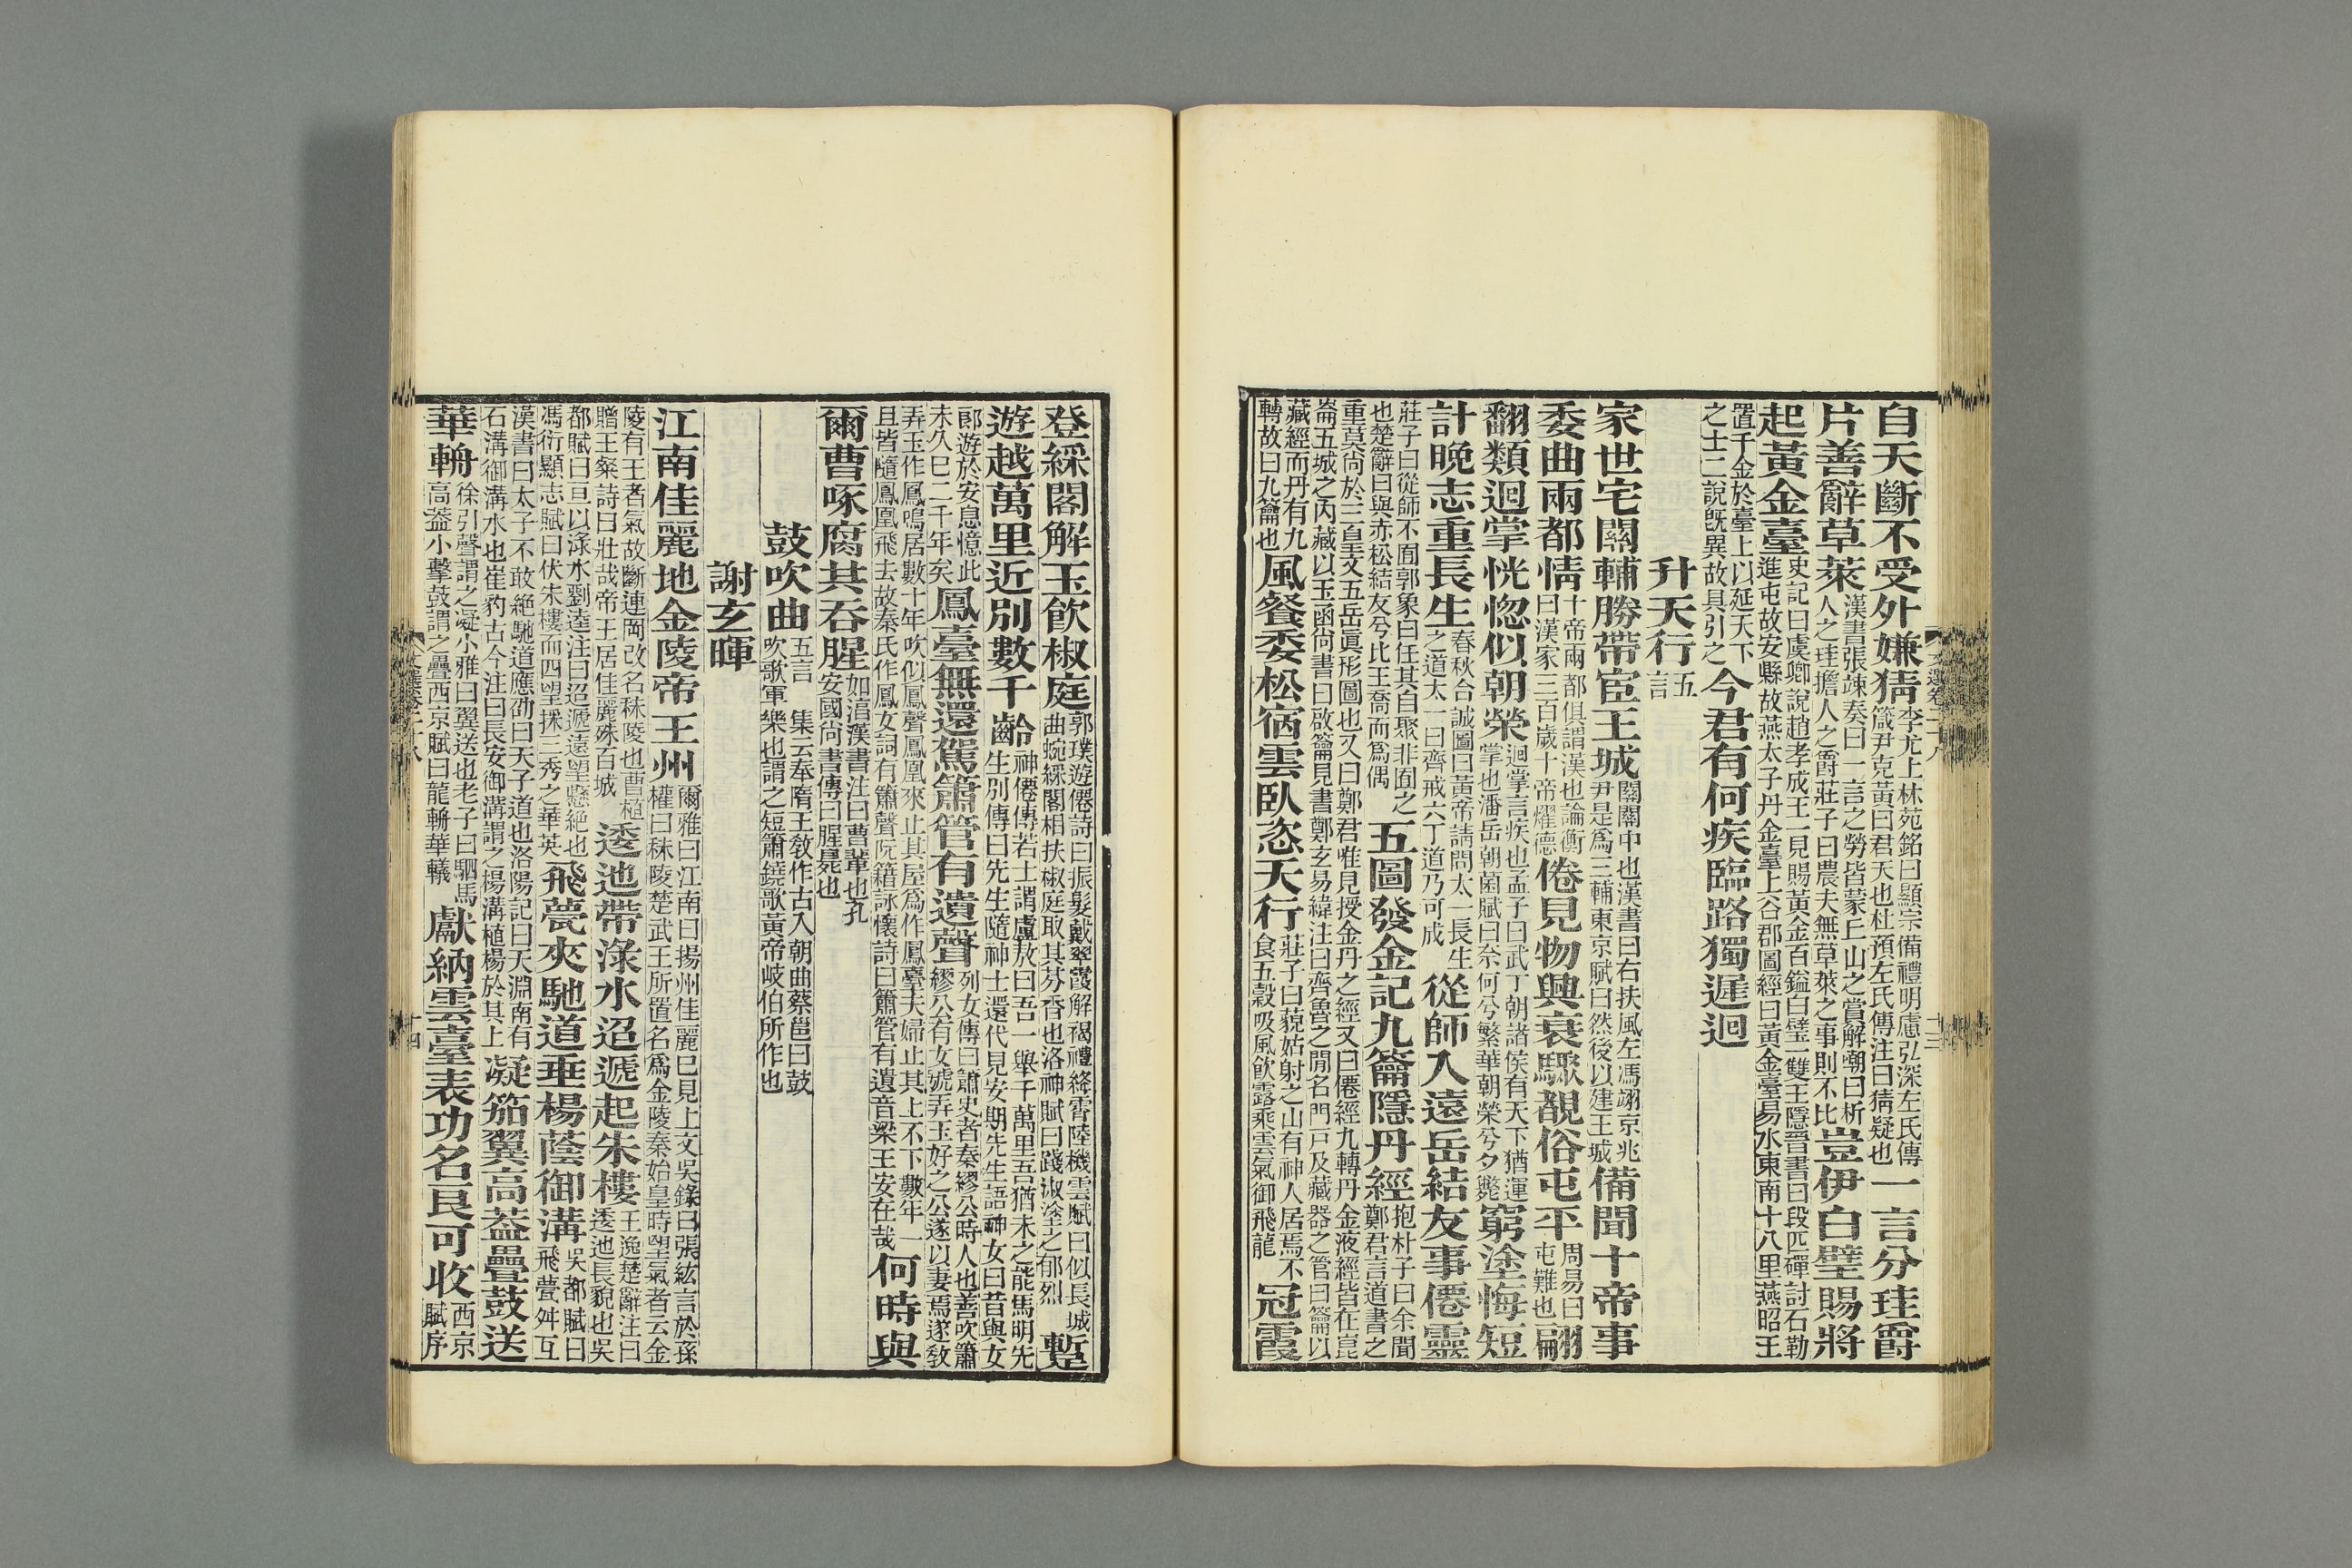 自天斷不受外嫌猜李尤上林苑銘曰顯宗備禮明慮弘深左氏傳箴尹克黃曰君天也杜預左氏傳注曰猜疑也一言分珪爵
片善辭草萊漢書張竦奏曰一言之勞皆蒙丘山之賞解嘲曰析人之珪擔人之爵莊子曰農夫無草萊之事則不比豈伊白璧賜將
起黃金臺史記曰虞卿說趙孝成王一見賜黃金百鎰白璧一雙王隱晉書曰段匹磾討石勒進屯故安縣故燕太子丹金臺上谷郡圖經曰黃金臺易水東南十八里燕昭王
置千金於臺上以延天下之士二說旣異故具引之今君有何疾臨路獨遲迴
升天行五言
家世宅關輔勝帶宦王城關關中也漢書曰右扶風左馮翊京兆尹是爲三輔東京賦曰然後以建王城備聞十帝事
委曲兩都情十帝兩都俱謂漢也論衡曰漢家三百歲十帝燿德倦見物興衰驟覩俗屯平周易曰屯難也翩
翻類迴掌恍惚似朝榮迴掌言疾也孟子曰武丁朝諸侯有天下猶運掌也潘岳朝菌賦曰奈何兮繁華朝榮兮夕斃窮塗悔短
計晚志重長生春秋合誠圖曰黃帝請問太一長生之道太一曰齊戒六丁道乃可成從師入遠岳結友事僊靈
莊子曰從師不囿郭象曰任其自聚非囿之也楚辭曰與赤松結友兮比王喬而爲偶五圖發金記九籥隱丹經抱朴子曰余聞鄭君言道書之
重莫尙於三皇文五岳眞形圖也又曰鄭君唯見授金丹之經又曰僊經九轉丹金液經皆在崑崙五城之內藏以玉函尙書曰啟籥見書鄭玄易緯注曰齊魯之閒名門戶及藏器之管曰籥以
藏經而丹有九轉故曰九籥也風餐委松宿雲臥恣天行莊子曰藐姑射之山有神人居焉不食五穀吸風飲露乘雲氣御飛龍冠霞
登綵閣解玉飲椒庭郭璞遊僊詩曰振髮戴翠霞解褐禮絳霄陸機雲賦曰似長城曲蜿綵閣相扶椒庭取其芬香也洛神賦曰踐淑塗之郁烈蹔
遊越萬里近別數千齡神僊傳若士謂盧敖曰吾一舉千萬里吾猶未之能馬明先生別傳曰先生隨神士還代見安期先生語神女曰昔與女
郎遊於安息憶此未久已二千年矣鳳臺無還駕簫管有遺聲列女傳曰簫史者秦繆公時人也善吹簫繆公有女號弄玉好之公遂以妻焉遂敎
弄玉作鳳鳴居數十年吹似鳳聲鳳凰來止其屋爲作鳳臺夫婦止其上不下數年一且皆隨鳳凰飛去故秦氏作鳳女祠有簫聲阮籍詠懷詩曰簫管有遺音梁王安在哉何時與
爾曹啄腐共吞腥如淳漢書注曰曹輩也孔安國尙書傳曰腥臭也
鼓吹曲五言 集云奉隋王敎作古入朝曲蔡邕曰鼓吹歌軍樂也謂之短簫鐃歌黃帝岐伯所作也
謝玄暉
江南佳麗地金陵帝王州爾雅曰江南曰揚州佳麗已見上文吳錄曰張紘言於孫權曰秣陵楚武王所置名爲金陵秦始皇時望氣者云金
陵有王者氣故斷連岡改名秣陵也曹植贈王粲詩曰壯哉帝王居佳麗殊百城逶迤帶淥水迢遞起朱樓王逸楚辭注曰逶迤長貌也吳
都賦曰亘以淥水劉逵注曰迢遞遠望懸絶也馮衍顯志賦曰伏朱樓而四望採三秀之華英飛甍夾馳道垂楊蔭御溝吳都賦曰飛甍舛互
漢書曰太子不敢絶馳道應劭曰天子道也洛陽記曰天淵南有石溝御溝水也崔豹古今注曰長安御溝謂之楊溝植楊於其上凝笳翼高葢疊鼓送
華輈徐引聲謂之凝小雅曰翼送也老子曰駟馬高葢小擊鼓謂之疊西京賦曰龍輈華轙獻納雲臺表功名良可收西京賦序